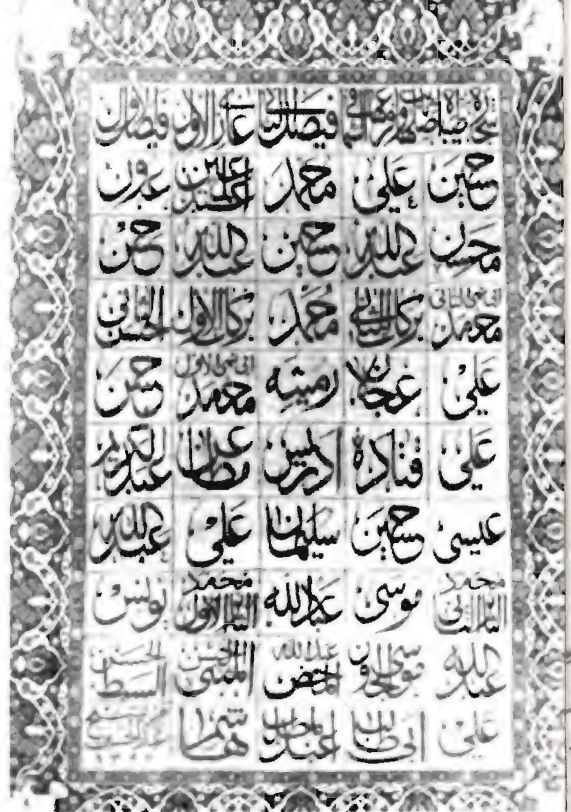 فيصل الثاني غازي الاول فيصل الاول
حسين علي محمد عبد المعين عون
محسن عبد الله حسين عبد الله حسن
محمد ابي نمي الثاني بركات الثاني محمد بركات الاول الحسن الثاني
علي عجلان رميثه محمد ابي نمي الاول حسن
علي قتادة ادريس مطاعن عبد الكريم
عيسى حسين سليمان علي عبد الله
محمد الثاني موسى عبد الله محمد الاول يونس
عبد الله موسى الجون عبد الله المحض الحسن المثنى الحسن السبط
علي ابي طالب عبد المطلب هاشم